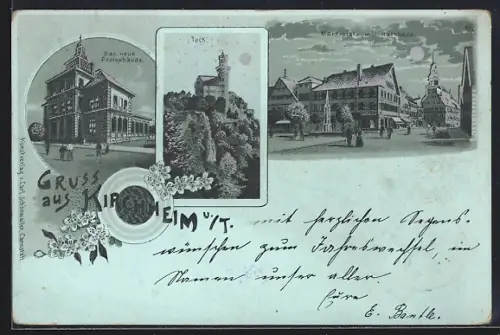 Das neue
Postgebäude.
Teck.
Marktplatz mit Rathaus.
Gruss
aus Kirchheim u/T.
mit herzlichen Segens-
wünschen zum Jahreswechsel, im
Namen unser aller
Eure
E. Bantle.